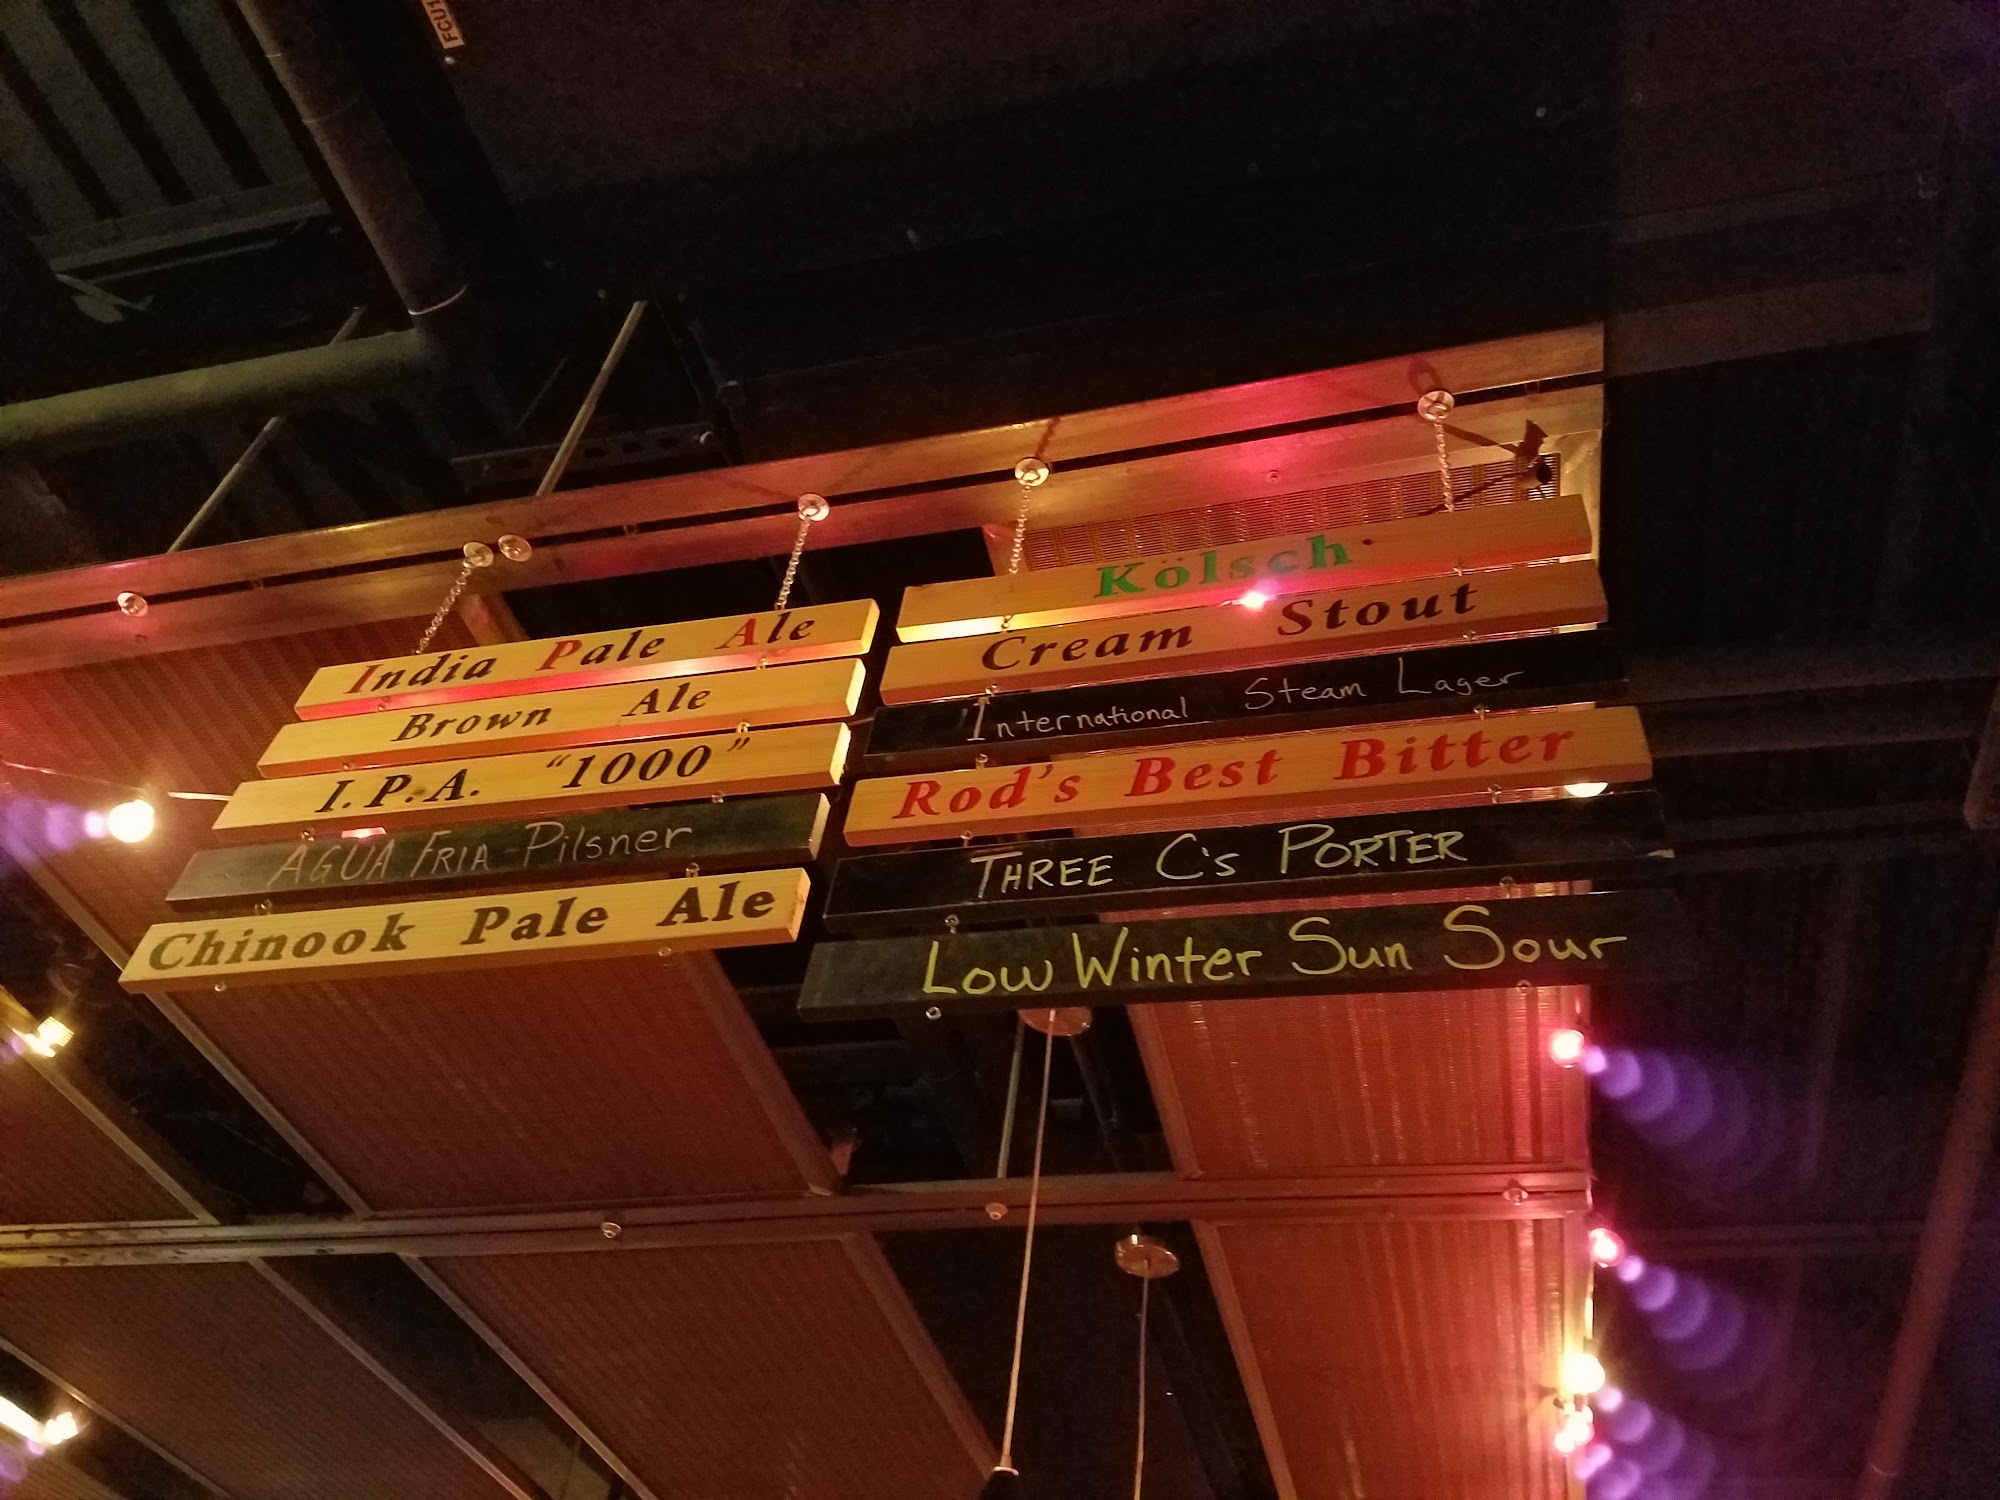 FCU1
India Pale Ale
Brown Ale
I.P.A. "1000"
AGUA FRIA - Pilsner
Chinook Pale Ale
Kölsch
Cream Stout
International Steam Lager
Rod's Best Bitter
THREE C's PORTER
Low Winter Sun Sour